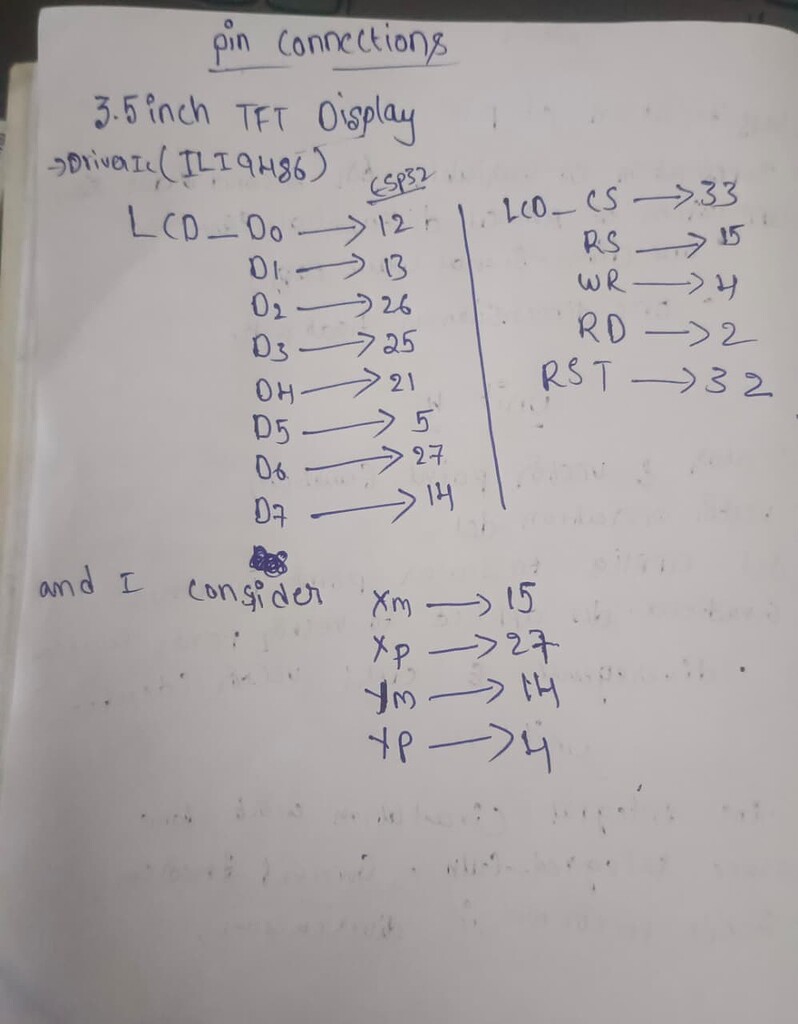 pin connections
3.5 inch TFT Display
→ Driver Ic (ILI9486)
ESP32
LCD_D0 → 12
D1 → 13
D2 → 26
D3 → 25
D4 → 21
D5 → 5
D6 → 27
D7 → 14
LCD_CS → 33
RS → 15
WR → 4
RD → 2
RST → 32
and I consider
Xm → 15
Xp → 27
Ym → 14
Yp → 4